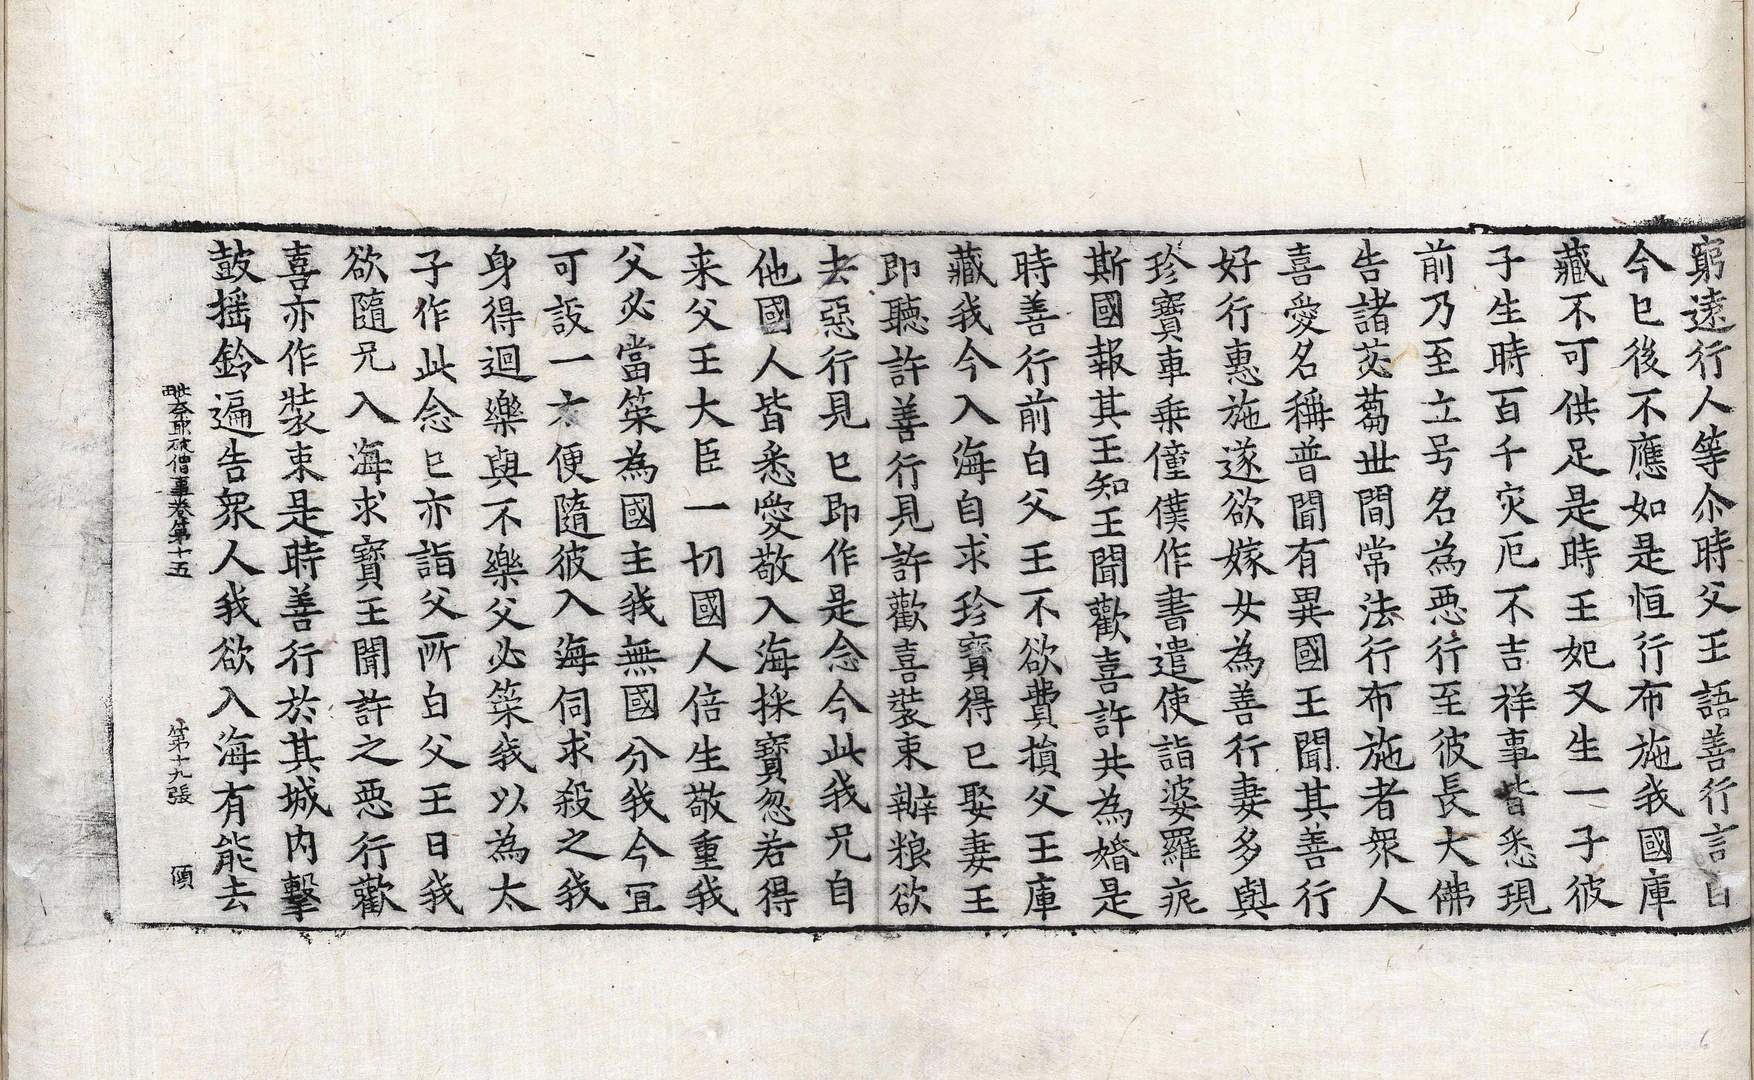 窮遠行人等尒時父王語善行言自
今已後不應如是恒行布施我國庫
藏不可供足是時王妃又生一子彼
子生時百千灾厄不吉祥事皆悉現
前乃至立号名為惡行至彼長大佛
告諸苾蒭世間常法行布施者衆人
喜愛名稱普聞有異國王聞其善行
好行惠施遂欲嫁女為善行妻多與
珍寶車乗僮僕作書遣使詣婆羅痆
斯國報其王知王聞歡喜許共為婚是
時善行前白父王不欲費損父王庫
藏我今入海自求珍寶得已娶妻王
即聽許善行見許歡喜裝束辦粮欲
去惡行見已即作是念今此我兄自
他國人皆悉愛敬入海採寶忽若得
来父王大臣一切國人倍生敬重我
父必當策為國主我無國分我今冝
可設一方便隨彼入海伺求殺之我
身得迴樂與不樂父必策我以為太
子作此念已亦詣父所白父王曰我
欲隨兄入海求寶王聞許之惡行歡
喜亦作裝束是時善行於其城内擊
鼓揺鈴遍告衆人我欲入海有能去
毗奈耶破僧事卷第十五 第十九張 傾